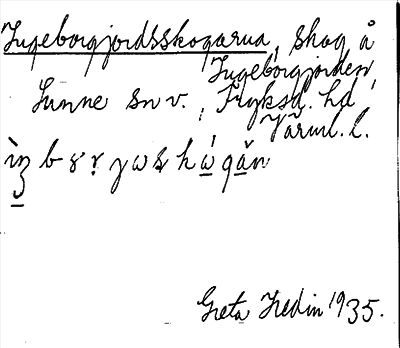 Ingeborgjordsskogarna, skog å
Ingeborgjorden,
Sunne sn v., Fryksd. hd,
Värml. l.
Greta Hedin 1935.